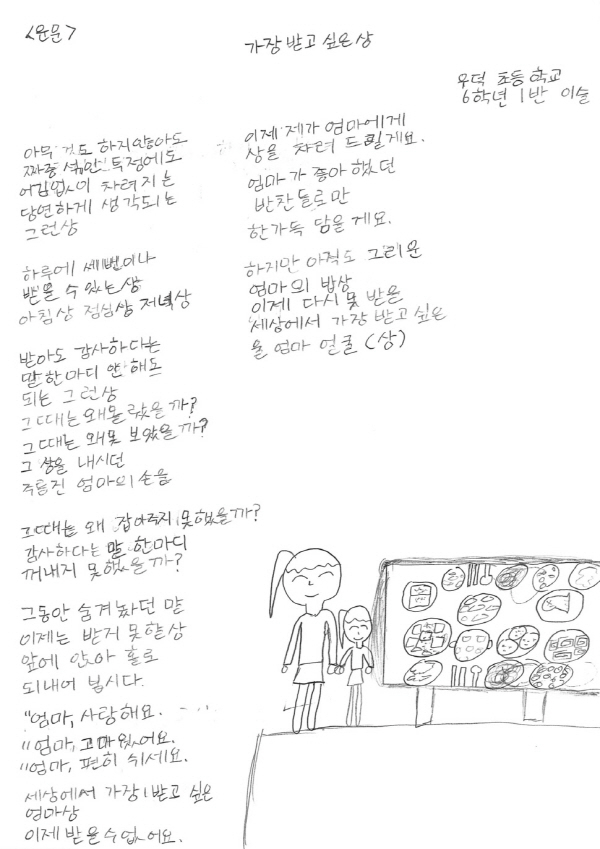 <운문>
가장 받고 싶은 상
우덕 초등학교
6학년 1반 이슬
아무 것도 하지 않아도
짜증 섞인 투정에도
어김없이 차려지는
당연하게 생각되는
그런상
하루에 세번이나
받을 수 있는상
아침상 점심상 저녁상
받아도 감사하다는
말 한마디 안 해도
되는 그런상
그때는 왜 몰랐을까?
그때는 왜 못 보았을까?
그 상을 내시던
주름진 엄마의 손을
그때는 왜 잡아주지 못했을까?
감사하다는 말 한마디
꺼내지 못했을까?
그동안 숨겨놨던 말
이제는 받지 못할상
앞에 앉아 홀로
되내어 봅시다.
"엄마, 사랑해요.
"엄마, 고마웠어요.
"엄마, 편히 쉬세요.
세상에서 가장 받고 싶은
엄마상
이제 받을수 없어요.
이제 제가 엄마에게
상을 차려 드릴게요.
엄마가 좋아했던
반찬들로만
한가득 담을게요.
하지만 아직도 그리운
엄마의 밥상
이제 다시 못 받을
세상에서 가장 받고 싶은
울 엄마 얼굴 (상)